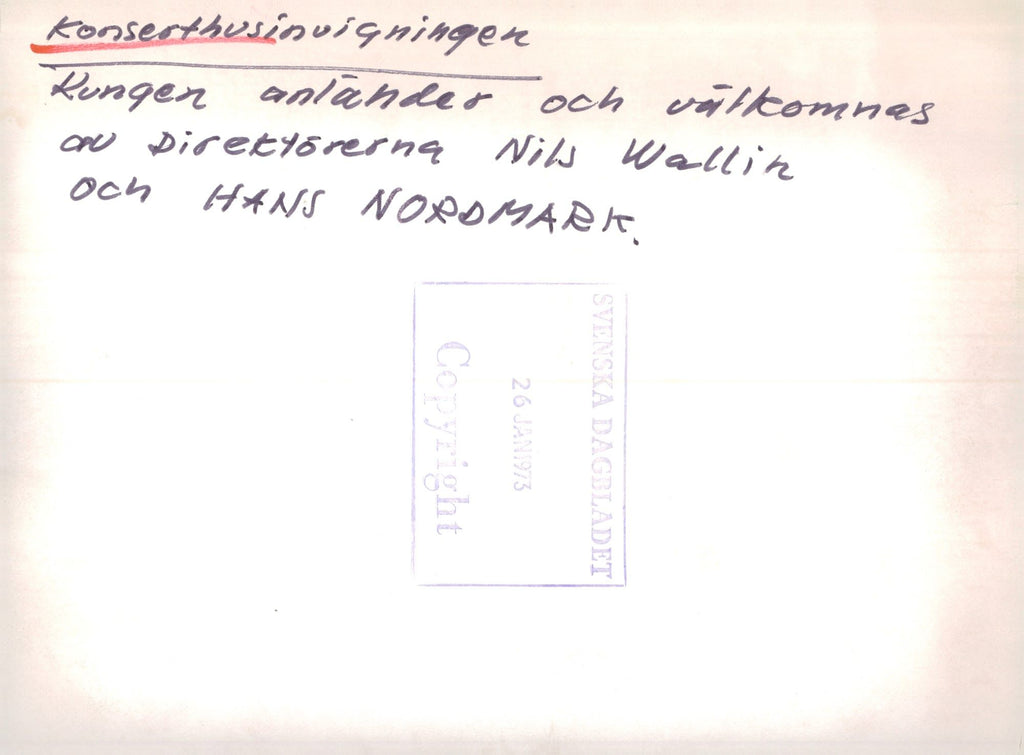 Konserthusinvigningen
Kungen anländer och välkomnas
av Direktörerna Nils Wallin
och HANS NORDMARK.
SVENSKA DAGBLADET
26 JAN 1973
Copyright